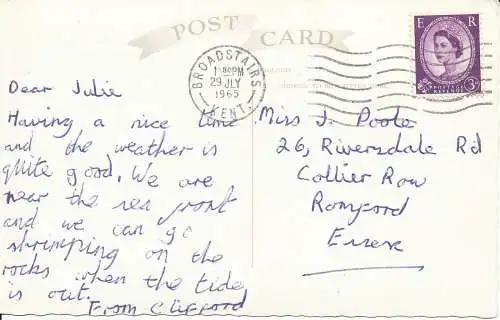 POST CARD
BROADSTAIRS
KENT
29 JLY
1965
E R
POSTAGE
REVENUE
3D
Dear Julie
Having a nice time
and the weather is
quite good. We are
near the sea front
and we can go
shrimping on the
rocks when the tide
is out.
From Clifford
Miss J. Poole
26, Riversdale Rd
Collier Row
Romford
Essex